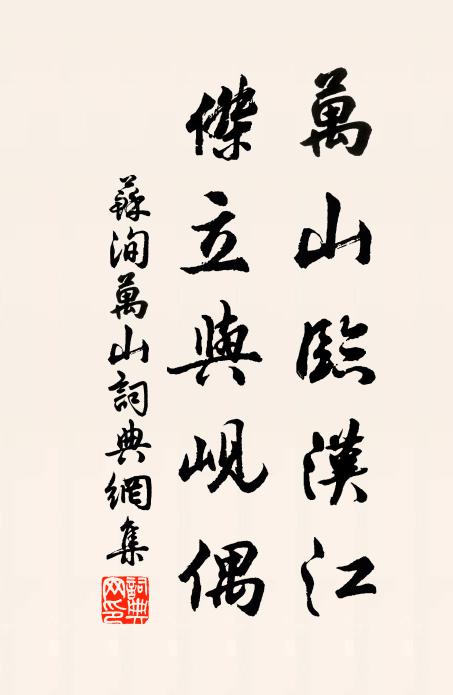 萬山臨漢江
傑立與峴偶
蘇洵萬山詞典網集
詞典网印